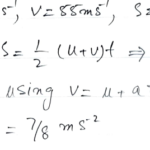 s⁻¹, V = 55ms⁻¹, S=
S = 1/2 (u+v)t ⇒
using v = u + a
= 7/8 ms⁻²